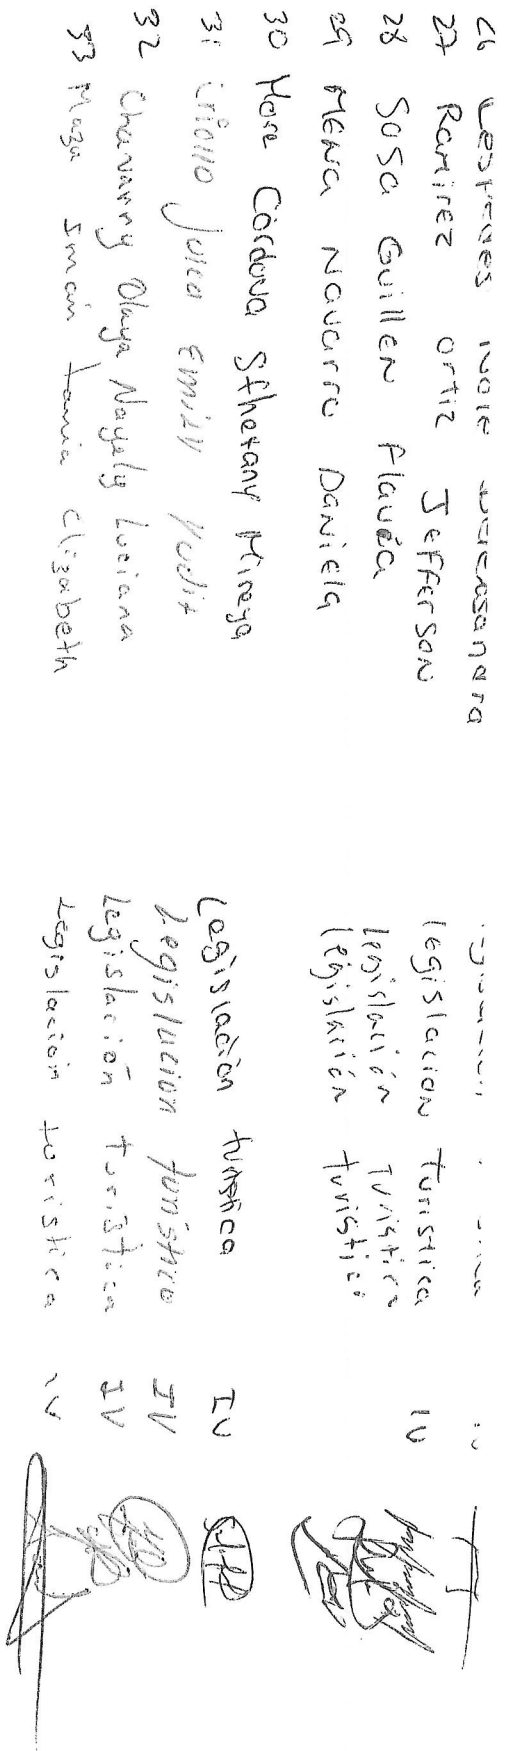 26
27 Ramirez ortiz Jefferson legislacion Turistica IV
28 Sosa Guillen Flavia legislación Turistica
29 MENA NAVARRO DANIELA legislación turistic
30 More Córdova Sthefany Mireya Legislación turistica IV
31 criollo Julca Emily Yudit Legislacion turistico IV
32 Chavarry Olaya Nayely Luciana Legislación turistica IV
33 Maza Smain tania Elizabeth Legislacion turistica IV